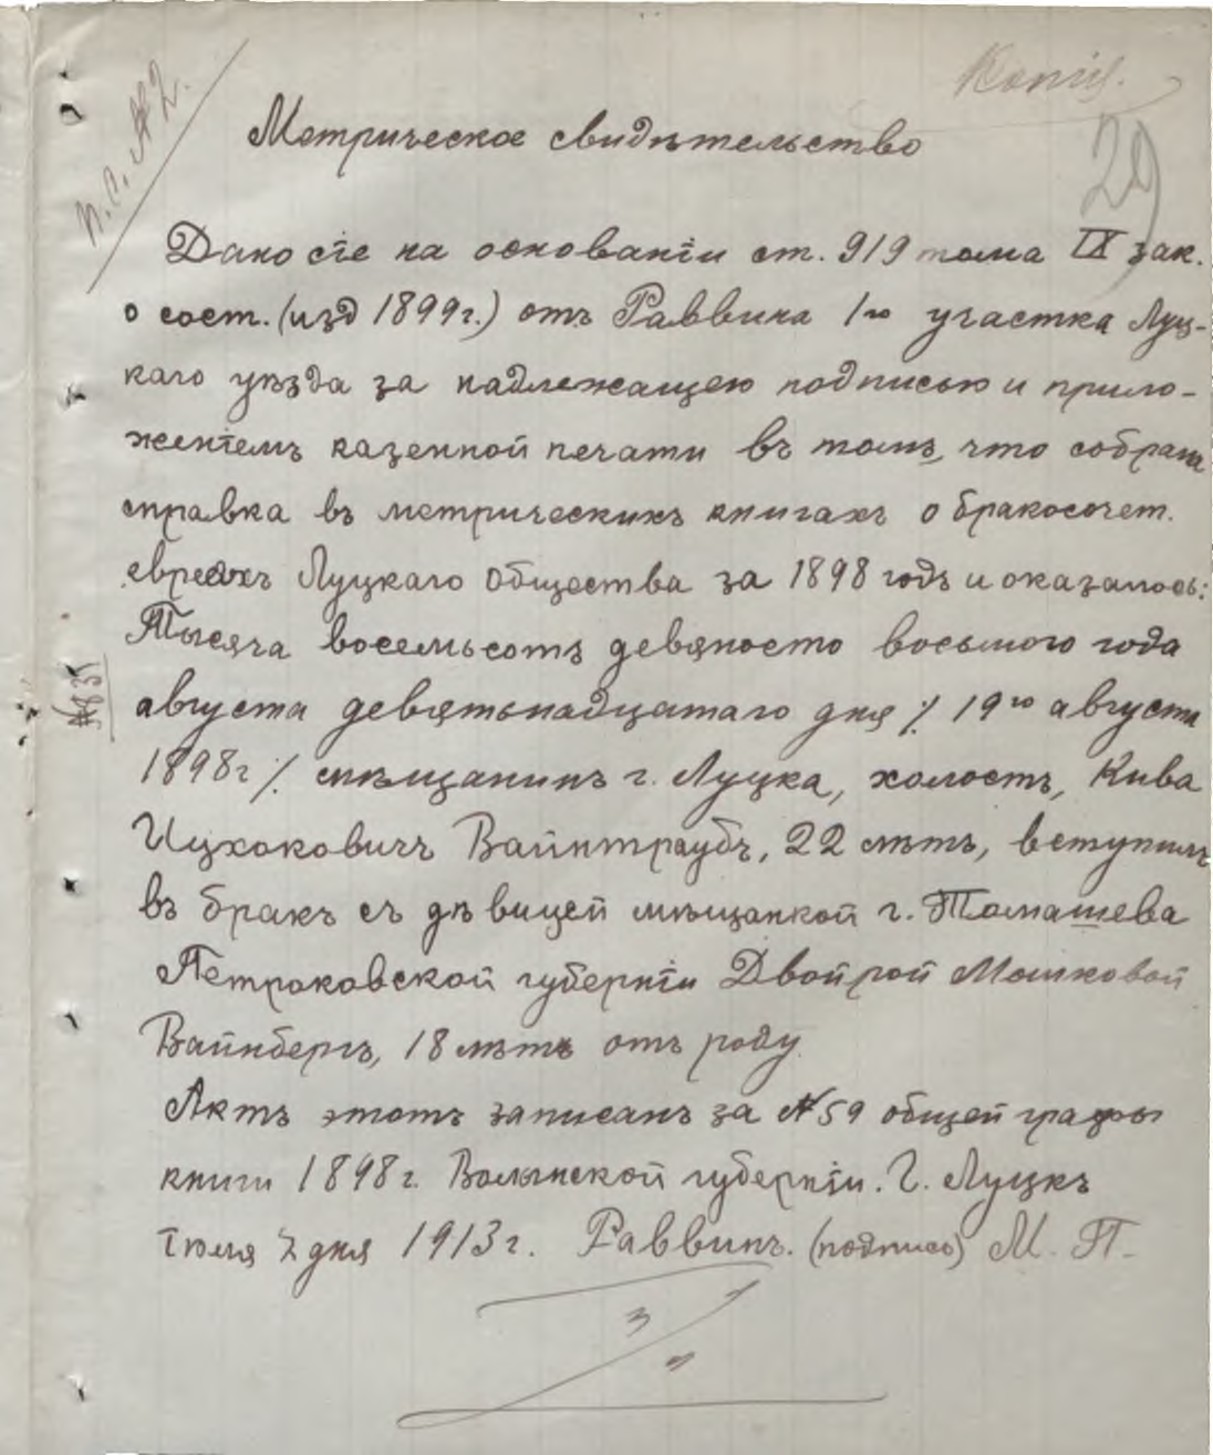 Копія.
п.с. №2.
29
Метрическое свидѣтельство
Дано сіе на основаніи ст. 919 тома IX зак.
о сост. (изд 1899г.) отъ Раввина 1го участка Луц-
каго уѣзда за надлежащею подписью и прило-
женіемъ казенной печати въ томъ, что собрана
справка въ метрическихъ книгахъ о бракосочет.
евреяхъ Луцкаго Общества за 1898 годъ и оказалось:
Тысяча восемьсотъ девяносто восьмого года
августа девятьнадцатаго дня ٪ 19го августа
1898г ٪ мѣщанинъ г. Луцка, холостъ, Кива
Ицхоковичъ Вайнтраубъ, 22 лѣтъ, вступилъ
въ бракъ съ дѣвицей мѣщанкой г. Томашева
Петроковской губерніи Двойрой Мошковой
Вайнбергъ, 18 лѣтъ отъ роду.
Актъ этотъ записанъ за №59 общей графы
книги 1898г. Волынской губерніи. Г. Луцкъ
іюля 2 дня 1913г. Раввинъ. (подпись) М. П.